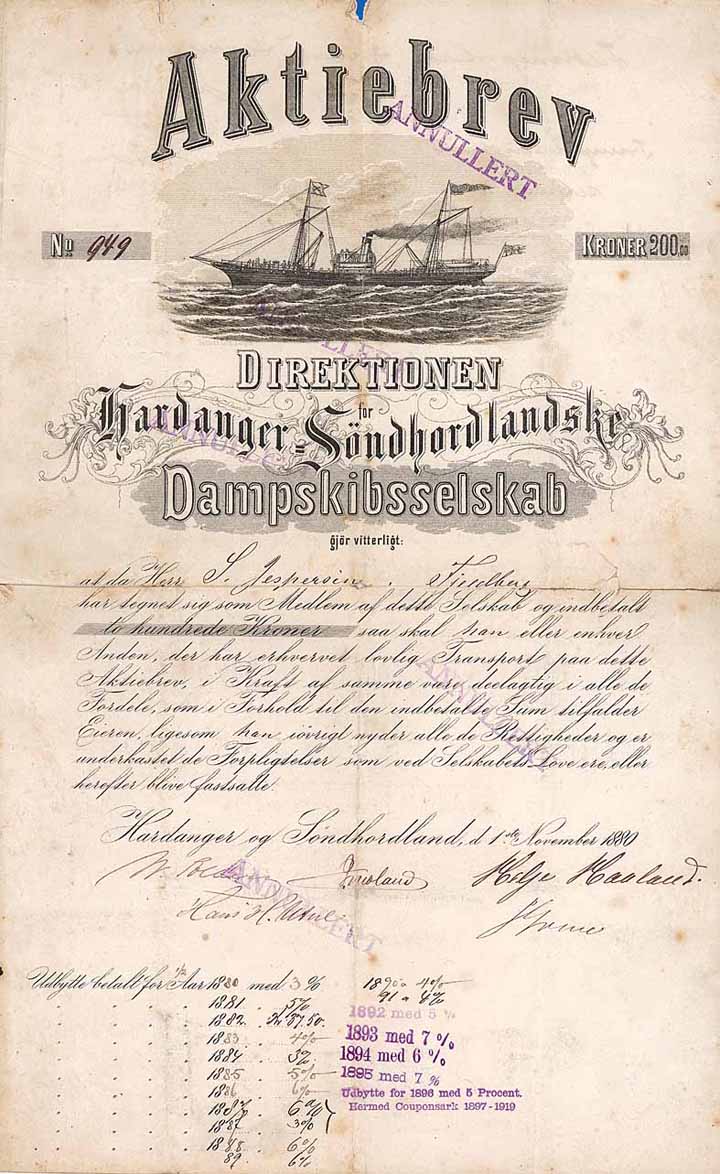 Aktiebrev
ANNULLERT
No 949
KRONER 200,00
ANNULLERT
DIREKTIONEN
for
Hardanger-Söndhordlandske
ANNULLERT
Dampskibsselskab
gjör vitterligt:
at da Herr S. Jespersen
har tegnet sig som Medlem af dette Selskab og indbetalt
to hundrede Kroner saa skal han eller enhver
Anden, der har erhvervet lovlig Transport paa dette
Aktiebrev, i Kraft af samme være deelagtig i alle de
Fordele, som i Forhold til den indbetalte Sum tilfalder
Eieren, ligesom han iövrigt nyder alle de Rettigheder og er
underkastet de Forpligtelser som ved Selskabets Love ere, eller
herefter blive fastsatte.
ANNULLERT
Hardanger og Söndhordland, d 1ste November 1880
Helje Haaland.
Hans H.
ANNULLERT
Udbytte betalt for 1/2 Aar 1880 med 3 % 1890 a 4%
1881 . 5% 91 a 4%
1882. 37.50. 1892 med 5 %
1883 . 4% 1893 med 7 %
1884 . 3% 1894 med 6 %
1885 . 5% 1895 med 7 %
1886 . 6% Udbytte for 1896 med 5 Procent.
6% Hermed Couponsark 1897-1919
1887 . 3%
1888 . 6%
89 . 6%